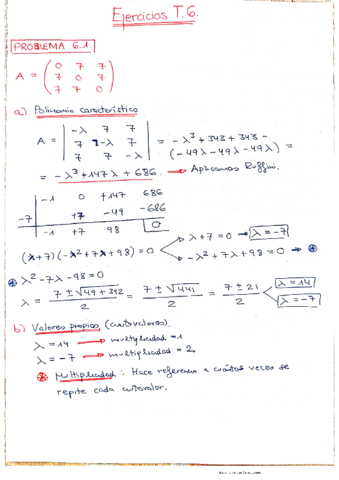 Ejercicios T.6.
PROBLEMA 6.1.
A = ( 0 7 7
7 0 7
7 7 0 )
a) Polinomio característico
A = | -λ 7 7
7 -λ 7
7 7 -λ | = -λ³ + 343 + 343 - (-49λ - 49λ - 49λ) =
= -λ³ + 147λ + 686. → Aplicamos Ruffini.
-1 0 +147 686
-7 | +7 -49 -686
-1 +7 98 0
(λ+7)(-λ²+7λ+98) = 0 λ+7 = 0 → λ = -7
-λ² + 7λ + 98 = 0 → *
* λ² - 7λ - 98 = 0
λ = 7 ± √49 + 392 / 2 = 7 ± √441 / 2 = 7 ± 21 / 2 λ = 14
λ = -7
b) Valores propios (autovalores).
λ = 14 → multiplicidad = 1
λ = -7 → multiplicidad = 2
* Multiplicidad : Hace referencia a cuántas veces se
repite cada autovalor.